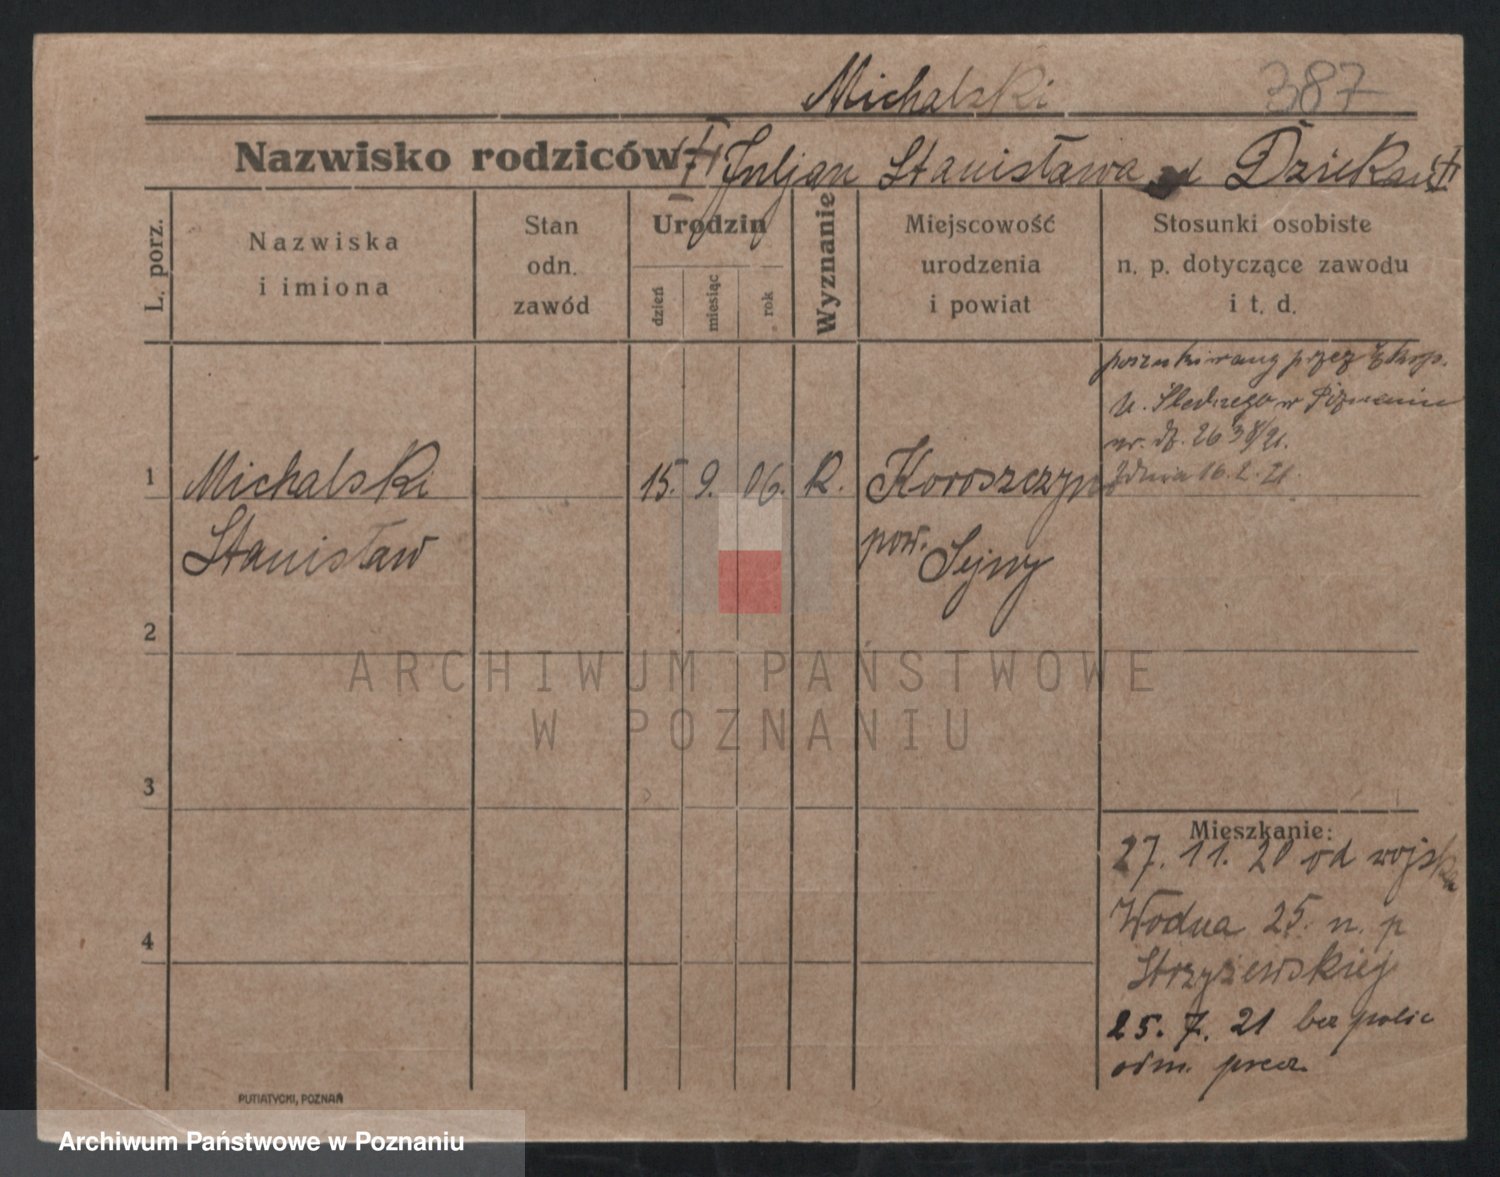 Michalski 387
Nazwisko rodziców: Juljan Stanisława Dziekan
L. porz.
Nazwiska
i imiona
Stan
odn.
zawód
Urodzin
dzień
miesiąc
rok
Wyznanie
Miejscowość
urodzenia
i powiat
Stosunki osobiste
n. p. dotyczące zawodu
i t. d.
poszukiwany przez
U. Śledczego w Poznaniu
nr. dz. 2638/21.
Zdnia 16.2.21.
1 Michalski 15. 9. 06. R. Koroszczyn
Stanisław pow. Sejny
2
3
4
Mieszkanie:
27. 11. 20 od wojska
Wodna 25. n. p
Strzyżewskiej
25. 7. 21 bez polic
odm. precz
PUTIATYCKI, POZNAŃ
ARCHIWUM PAŃSTWOWE
W POZNANIU
Archiwum Państwowe w Poznaniu